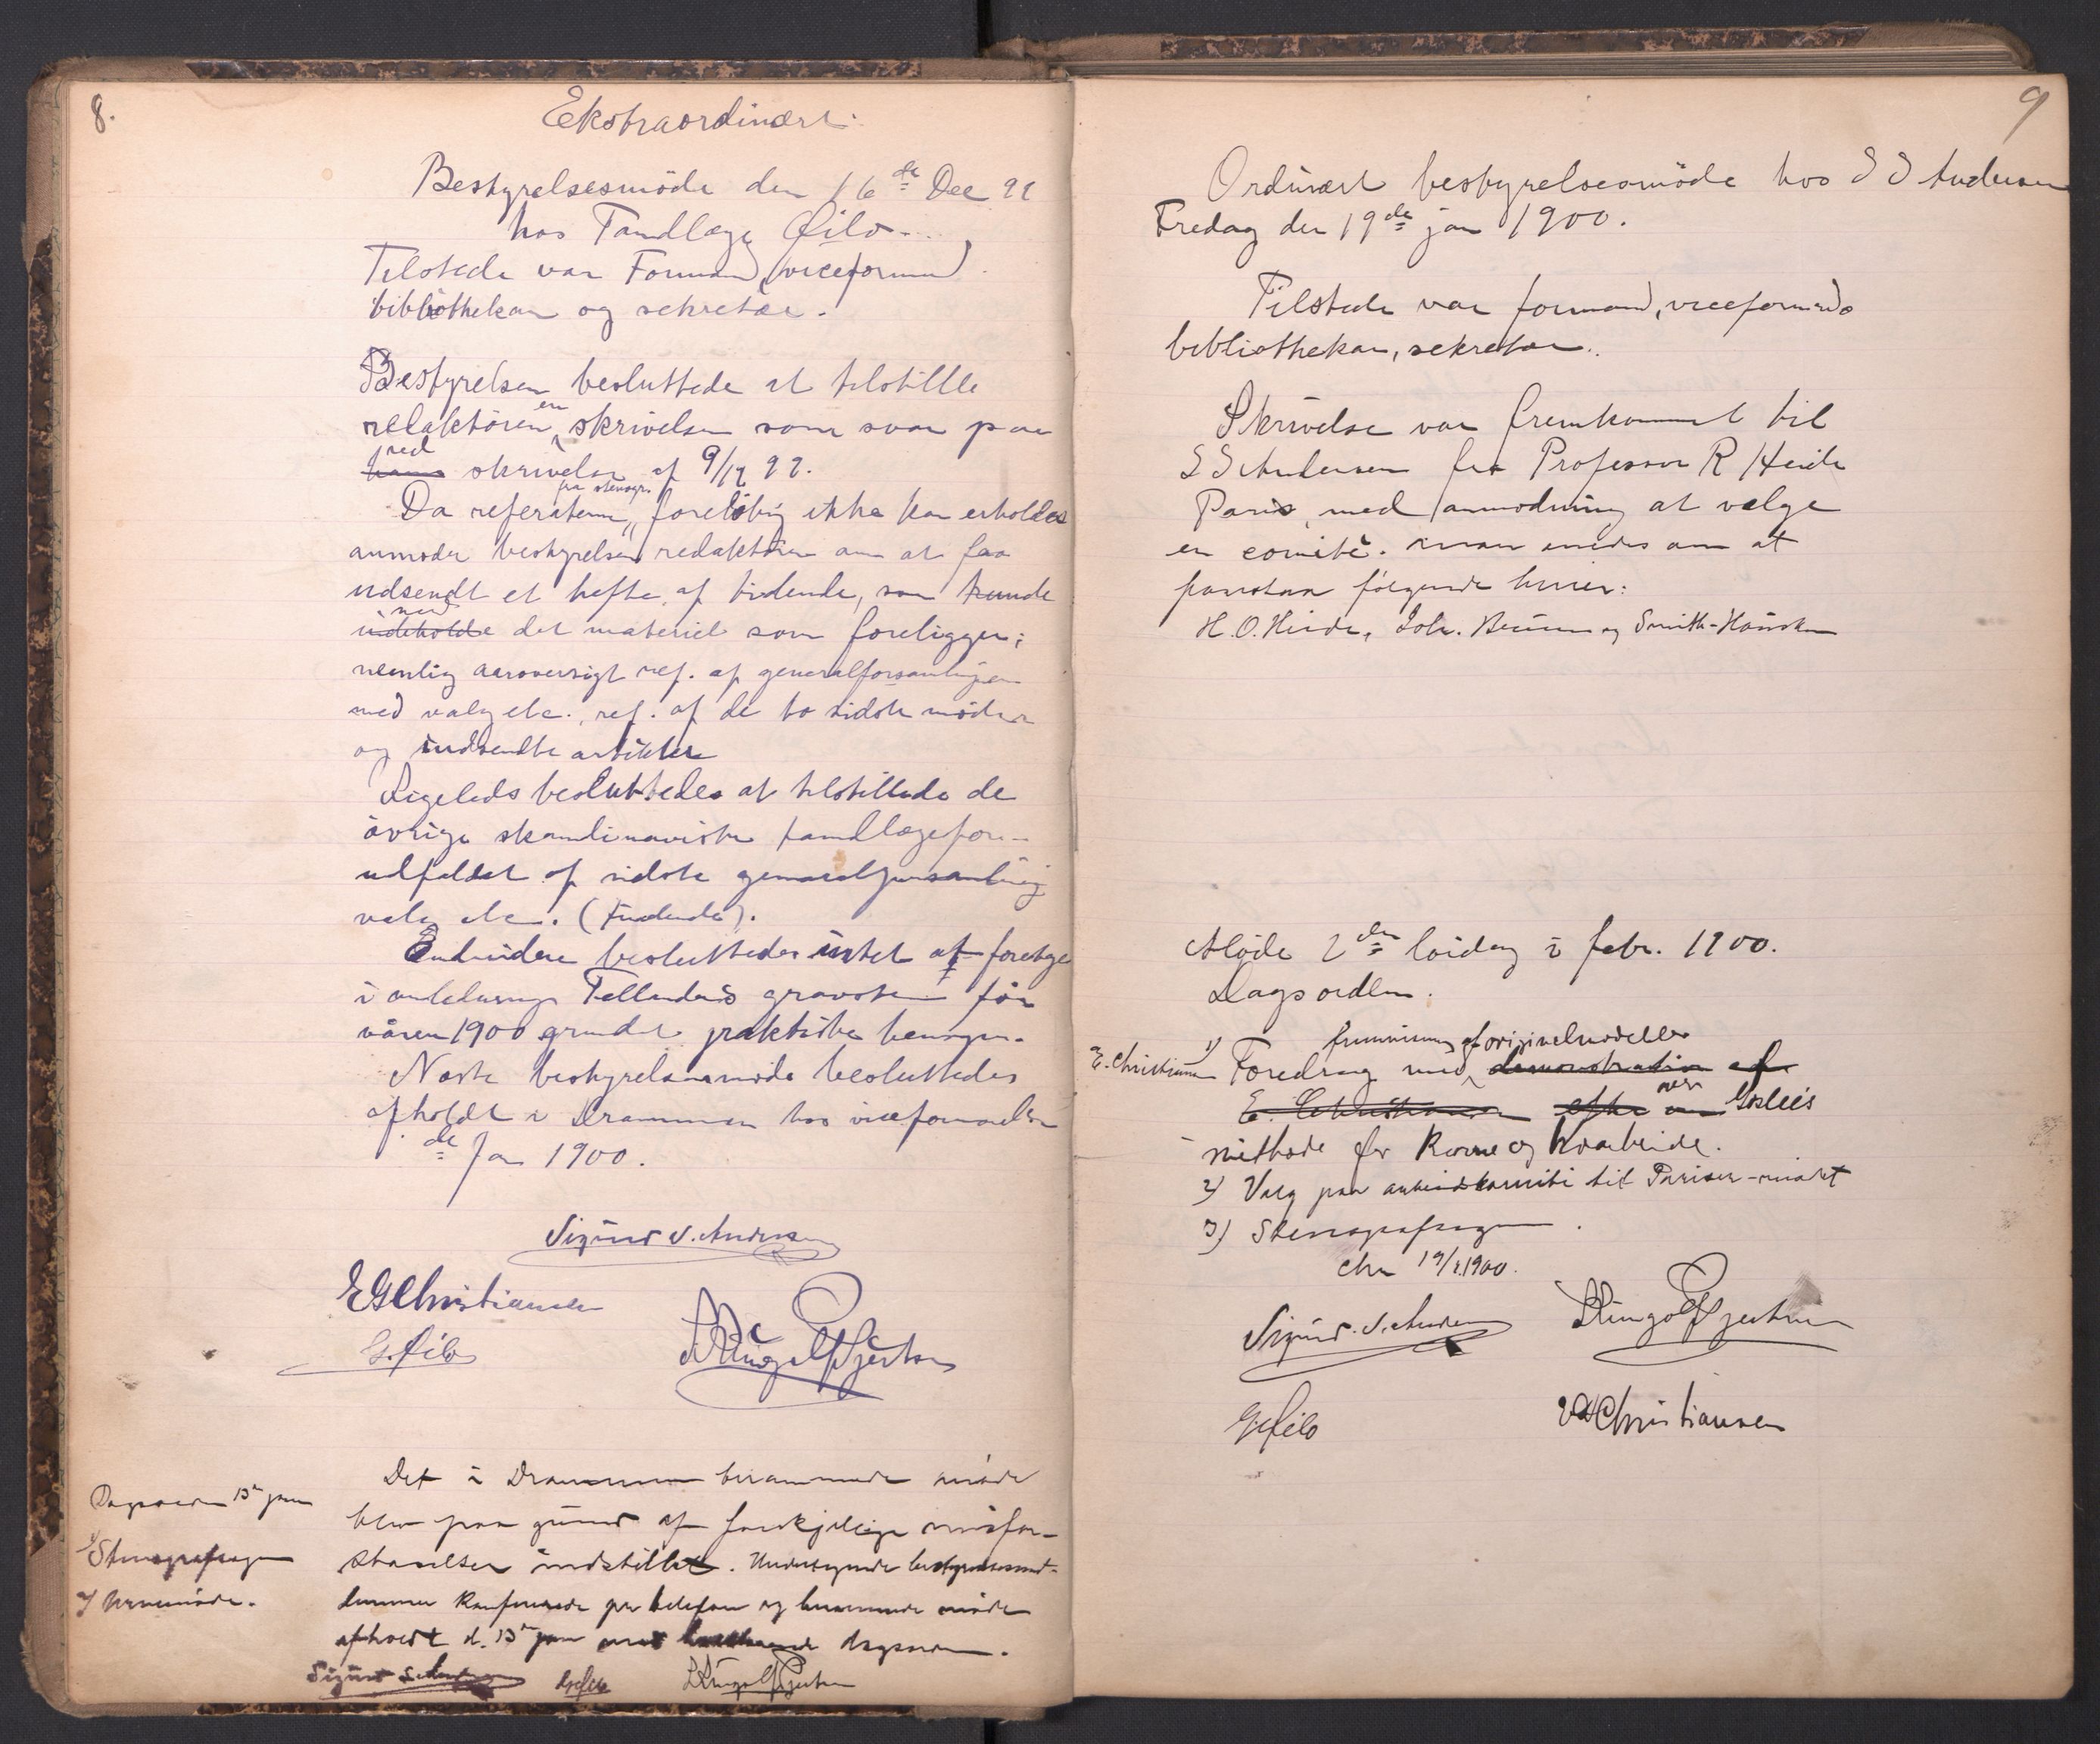 8.
Ekstraordinært
Bestyrelsesmöde den 16de Dec 99
hos Tandlæge Qilo.
Tilstede var Formand, viceformand
bibliothekar og sekretær.
Bestyrelsen besluttede at tilstille
redaktören en skrivelse som svar paa
hans red skrivelse af 9/12 99.
Da referaterne fra stenogr. foreløbig ikke kan erholdes
anmoder bestyrelsen redaktören om at faa
udsendt et hefte af tidende, som kunde
indeholde med det materiel som foreligger;
nemlig aarsoversigt ref. af generalforsamlingen
med valg etc., ref. af de to sidste möder
og indsendte artikler
Ligeleds besluttedes at tilstillede de
övrige skandinaviske tandlægefor.
udfaldet af sidste generalforsamling
valg etc. (Tidende).
Endvidere besluttedes intet at foretage
i anledning Tellanders gravsten för
våren 1900 grundet praktiske hensyn.
Næste bestyrelsesmöde besluttedes
afholdt i Drammen hos viceformanden
de Jan 1900.
Sigurd S. Andersen
E G Christiansen
G. Qilo
Det i Drammen berammede möde
blev paa grund af forskjellige misfor-
staaelser indstillet. Undertegnede bestyrelsesmed-
lemmer konfererede per telefon og berammede möde
afholdt d. 13de jan med hosstaaende dagsorden.
Dagsorden 13de jan
1) Stenografsagen
2) Vennemöde.
Sigurd S. Andersen G. Qilo
9
Ordinært bestyrelsesmöde hos S S Andersen
Fredag den 19de jan 1900.
Tilstede var formand, viceformand
bibliothekar, sekretær.
Skrivelse var fremkommet til
S S Andersen fra Professor R Heide
Paris, med anmodning at vælge
en comitè. man enedes om at
foreslaa fölgende herrer:
H. O. Heide, Joh. Bruun og Smith-Housken
Möde 2den löidag i febr. 1900.
Dagsorden.
fremvisning af originalmodeller
E. Christiansen 1) Foredrag med demonstration af
E. Christiansen efter over Goslees
methode for Krone og broarbeide.
2) Valg paa arbeidskomité til Pariser-mödet
3) Stenografsagen.
Chra 19/1.1900.
Sigurd. S. Andersen
G. Qilo
E G Christiansen